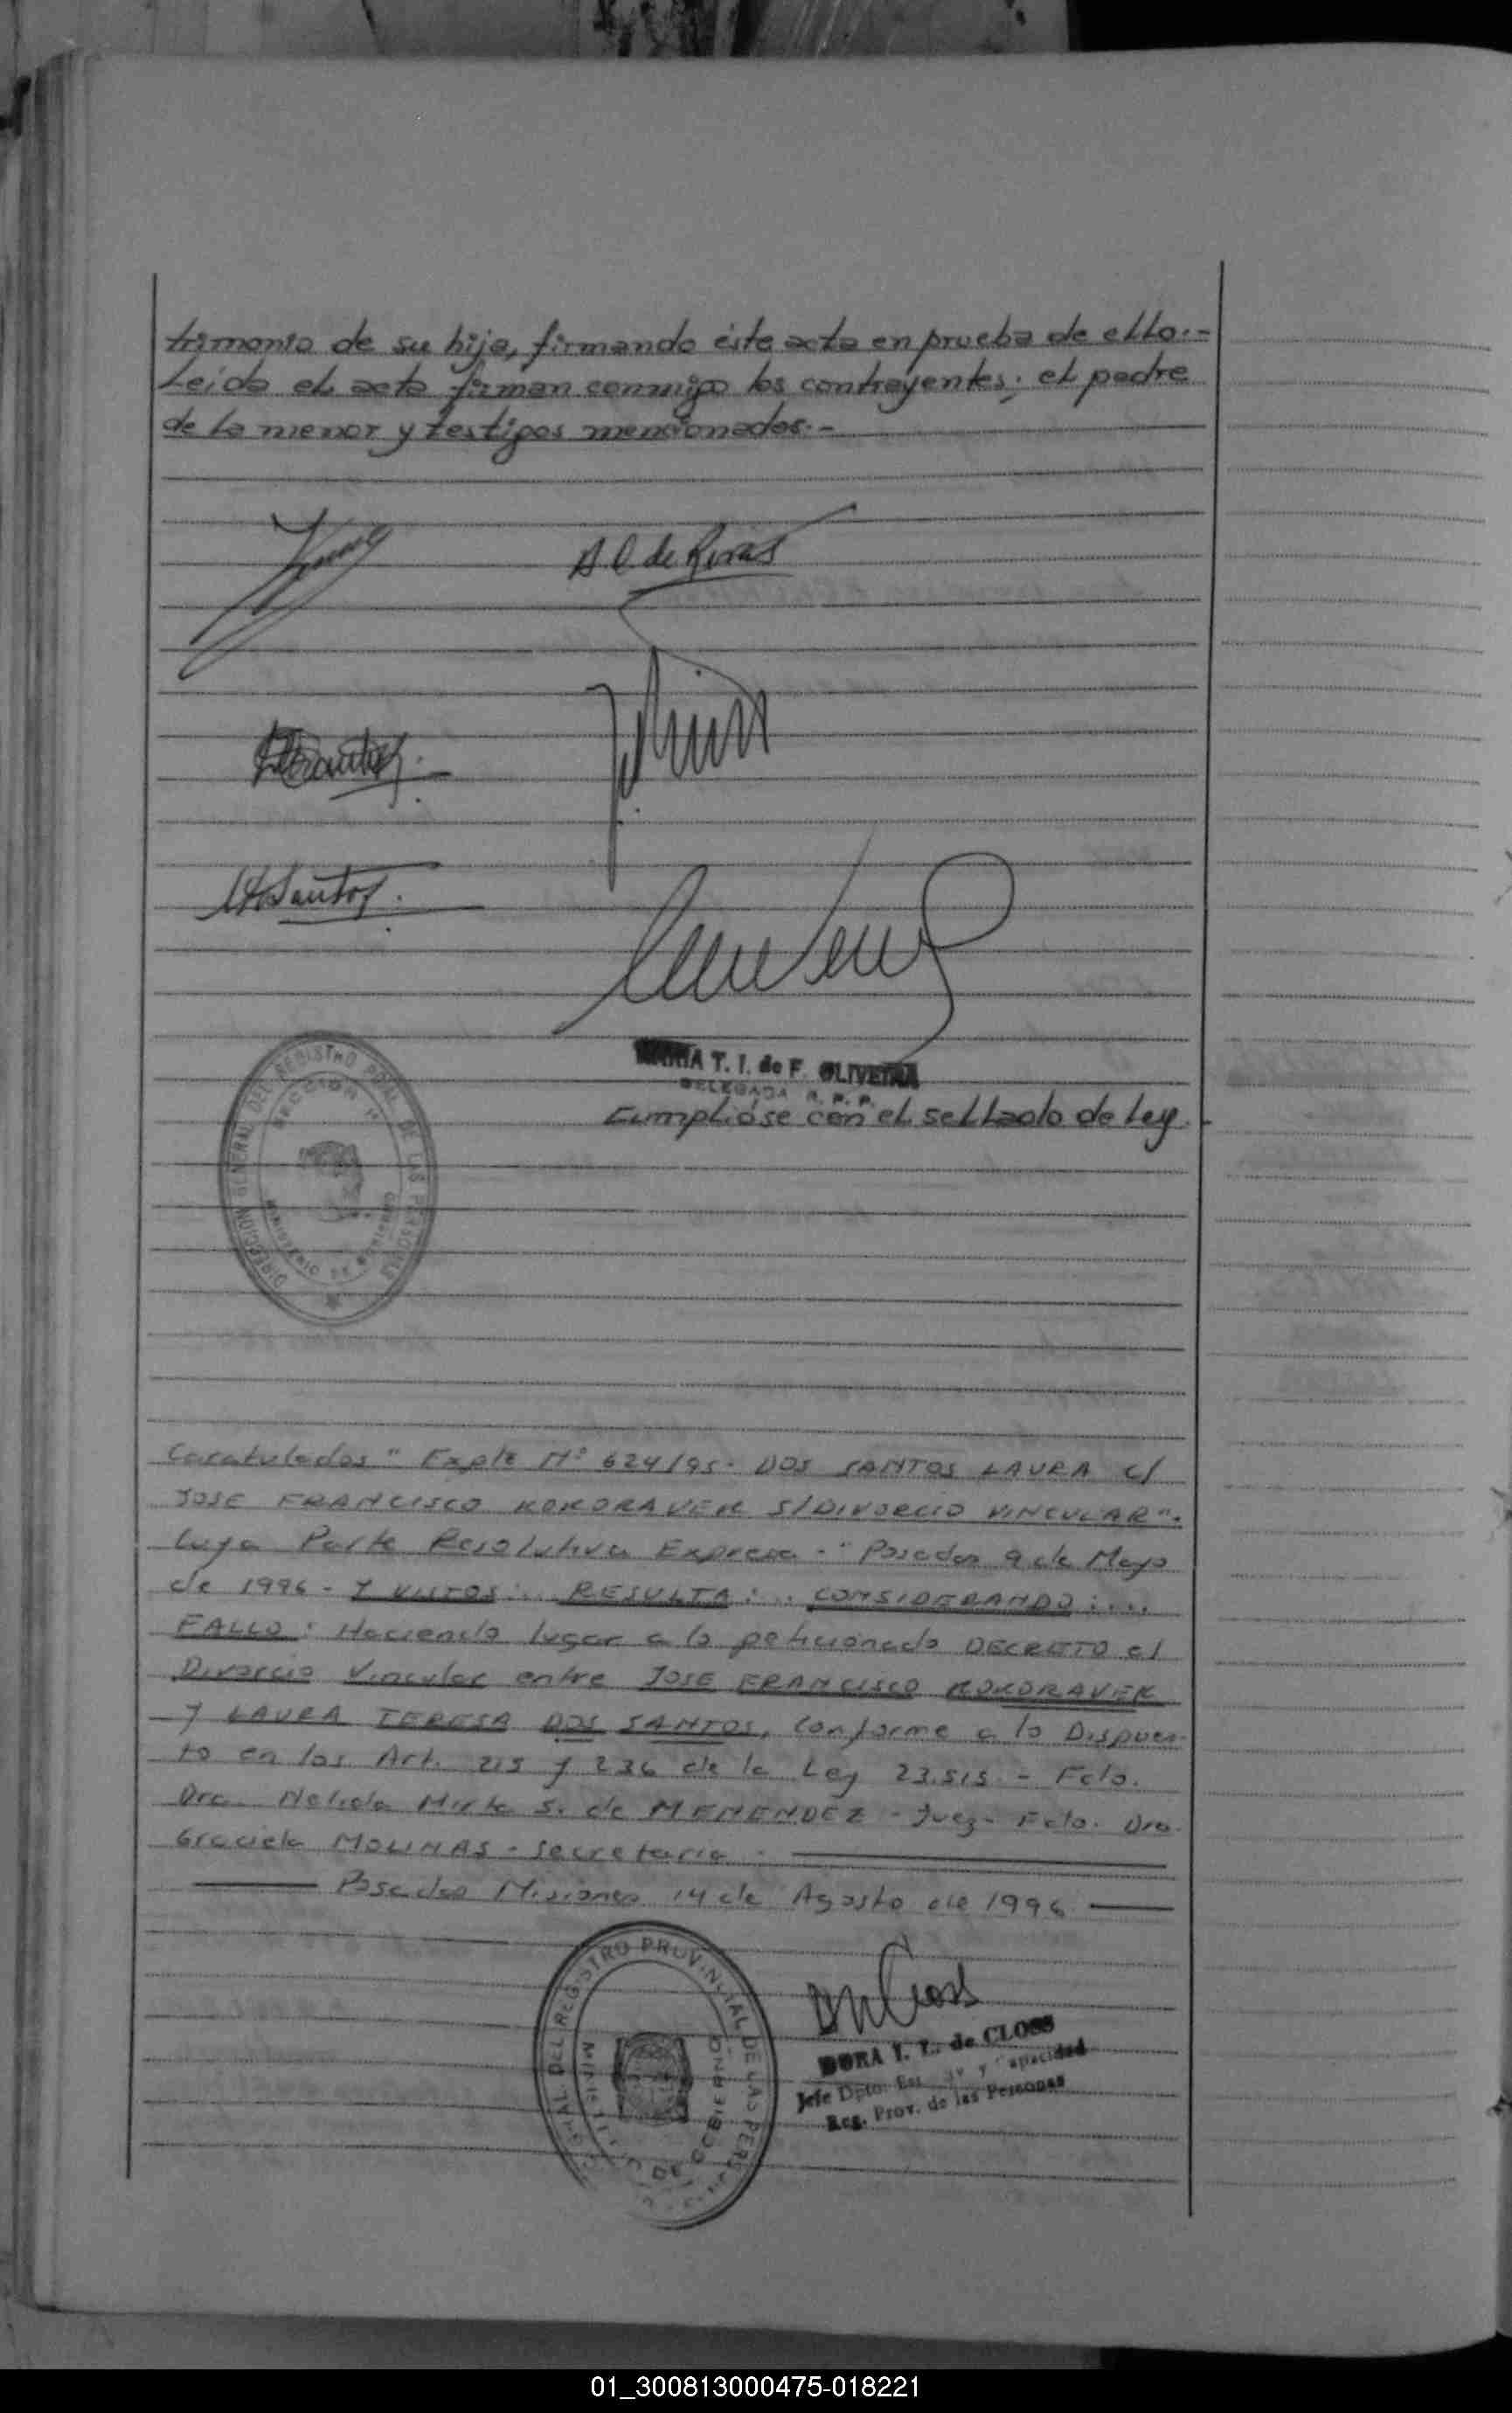 trimonio de su hija, firmando éste acta en prueba de ello.-
Leída el acta firman conmigo los contrayentes, el padre
de la menor y testigos mencionados.-
A C. de Rivas
MARIA T. I. de F. OLIVEIRA
DELEGADA R. P. P.
Cumplióse con el sellado de Ley.
DIRECCION GENERAL DEL REGISTRO PCIAL. DE LAS PERSONAS
MINISTERIO DE GOBIERNO
Caratulados "Expte Nº 624/95. DOS SANTOS LAURA c/
JOSE FRANCISCO KOKORAVEK S/DIVORCIO VINCULAR".
Cuya Parte Resolutiva Expresa - "Posadas 9 de Mayo
de 1996 - Y VISTOS:.. RESULTA:.. CONSIDERANDO:...
FALLO: Haciendo lugar a lo peticionado DECRETO el
Divorcio Vincular entre JOSE FRANCISCO KOKORAVEK
Y LAURA TERESA DOS SANTOS, Conforme a lo Dispues-
to en los Art. 215 y 236 de la Ley 23.515. - Fdo.
Dra. Nelida Mirta S. de MENENDEZ - Juez - Fdo. Dra.
Graciela MOLINAS - Secretaria.
Posadas Misiones 14 de Agosto de 1996
DEL REGISTRO PROVINCIAL DE LAS PERSONAS
MINISTERIO DE GOBIERNO
DORA I. L. de CLOSS
Jefe Dpto. Est. y Capacidad
Reg. Prov. de las Personas
01_300813000475-018221